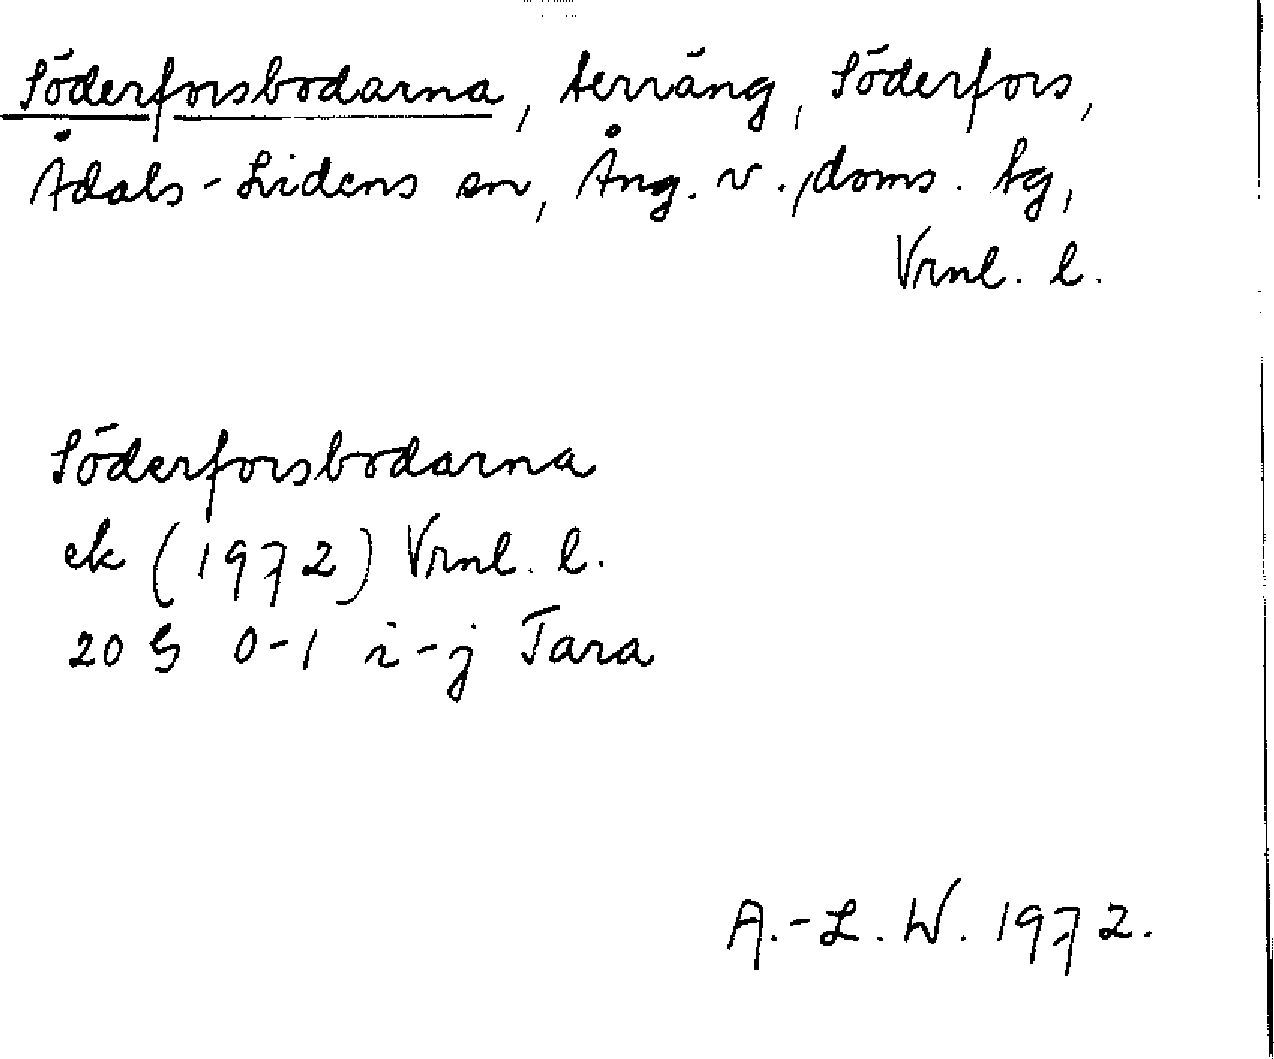 Söderforsbodarna, terräng, Söderfors,
Ådals-Lidens sn, Ång. v., doms. tg,
Vrnl. l.
Söderforsbodarna
ek (1972) Vrnl. l.
20 G 0-1 i-j Tara
A.-L. W. 1972.